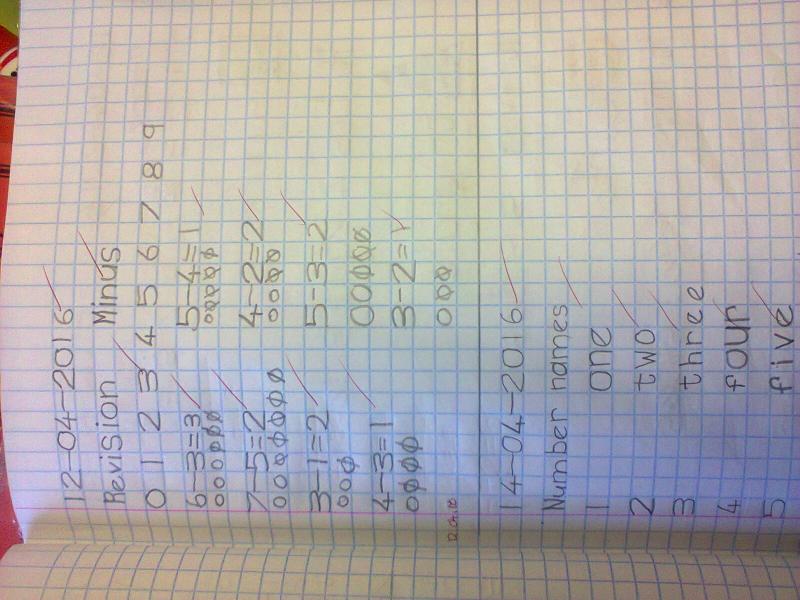 12-04-2016
Revision Minus
0 1 2 3 4 5 6 7 8 9
6-3=3 5-4=1
7-5=2 4-2=2
3-1=2 5-3=2
4-3=1 3-2=1
14-04-2016
Number names
1 one
2 two
3 three
4 four
5 five